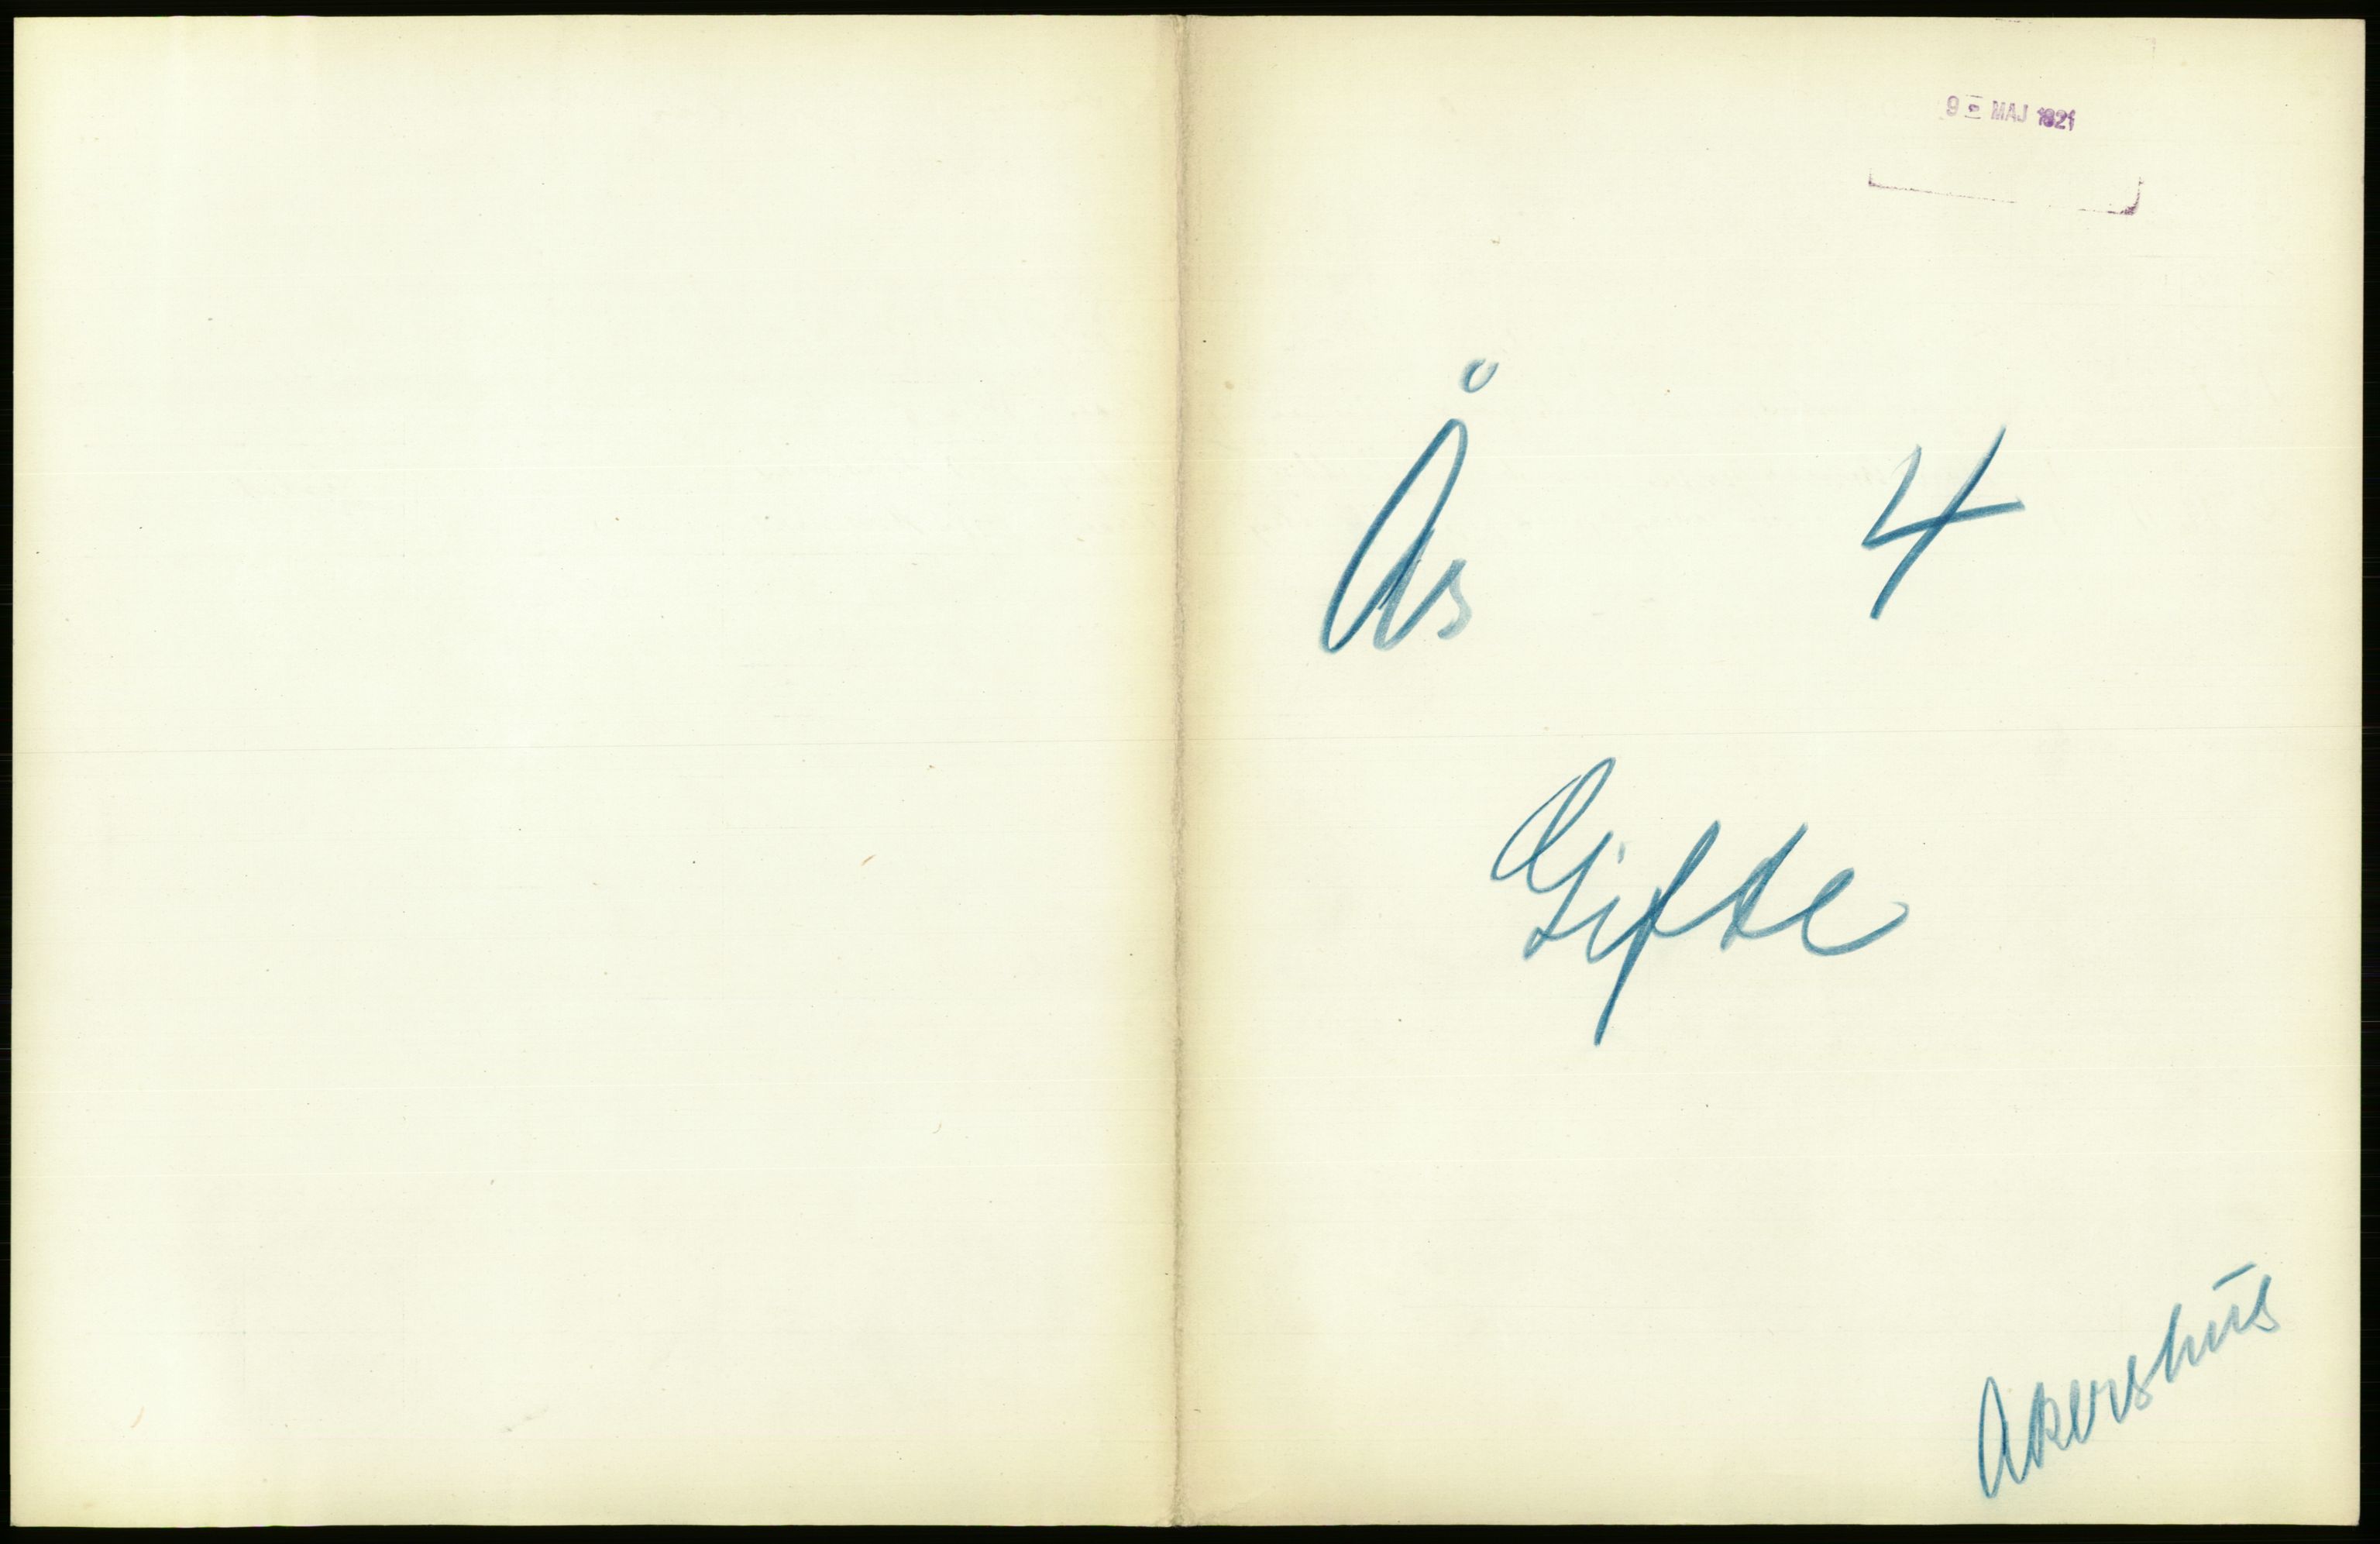 9 - MAJ 1921
Ås 4
Gifte
Akershus